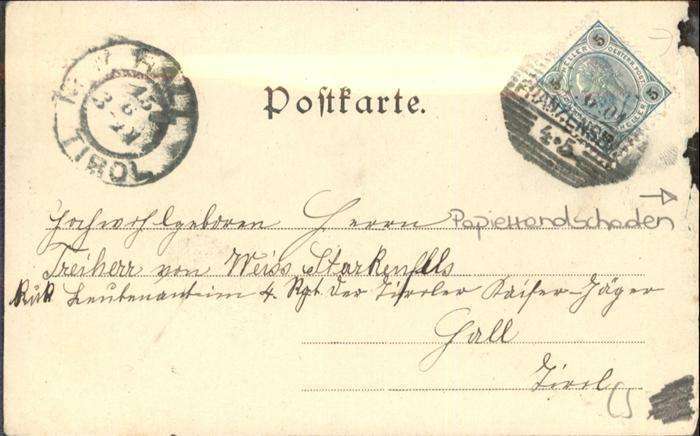 HALL
TIROL
Postkarte.
5 5
5
FRANZENSF
4·5
Hochwohlgeboren Herrn
Papierrandschaden
Freiherr von Weiss Starkenfels
KuK Leutenant im 4. Rgt. der Tiroler Kaiser-Jäger
Hall
Tirol